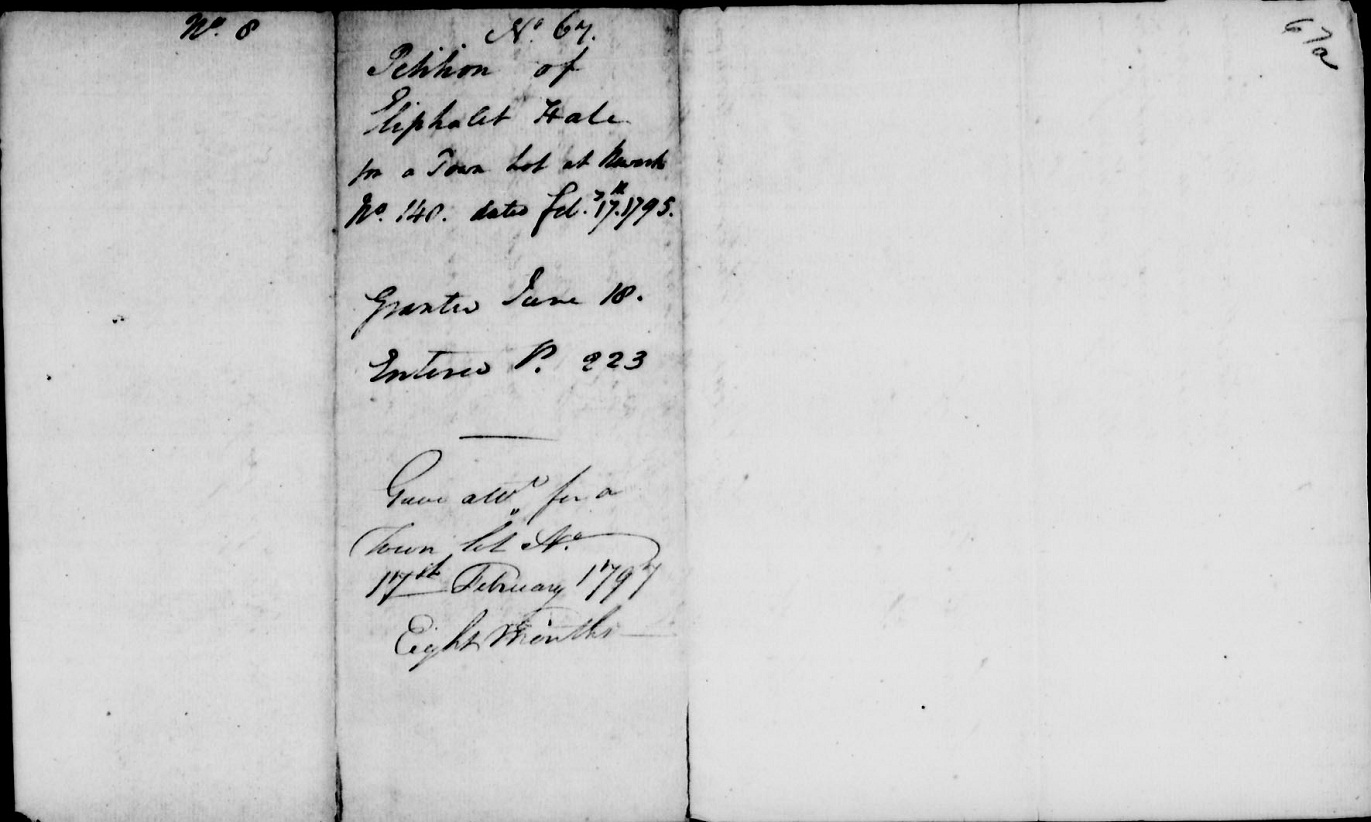 No. 8
No. 67.
Petition of
Eliphalet Hale
for a Town Lot at Newark
No. 140. dated feb. 17th. 1795.
Granted June 18.
Entered P. 223
Gave a for a
Town Lot No.
17th February 1797
Eight Months
67a